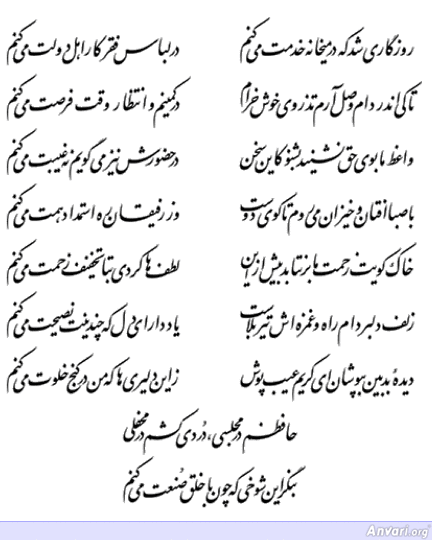 روزگاری شد که در میخانه خدمت می‌کنم
در لباس فقر کار اهل دولت می‌کنم
تا کی اندر دام وصل آرم تذروی خوش خرام
در کمینم و انتظار وقت فرصت می‌کنم
واعظ ما بوی حق نشنید بشنو کاین سخن
در حضورش نیز می‌گویم نه غیبت می‌کنم
با صبا افتان و خیزان می‌روم تا کوی دوست
وز رفیقان ره استمداد همت می‌کنم
خاک کویت زحمت ما برنتابد بیش از این
لطف‌ها کردی بتا تخفیف زحمت می‌کنم
زلف دلبر دام راه و غمزه‌اش تیر بلاست
یاد دار ای دل که چندینت نصیحت می‌کنم
دیدهٔ بدبین بپوشان ای کریم عیب پوش
زاین دلیری‌ها که من در کنج خلوت می‌کنم
حافظم در مجلسی، دُردی کشم در محفلی
بنگر این شوخی که چون با خلق صُنعت می‌کنم
Anvari.org